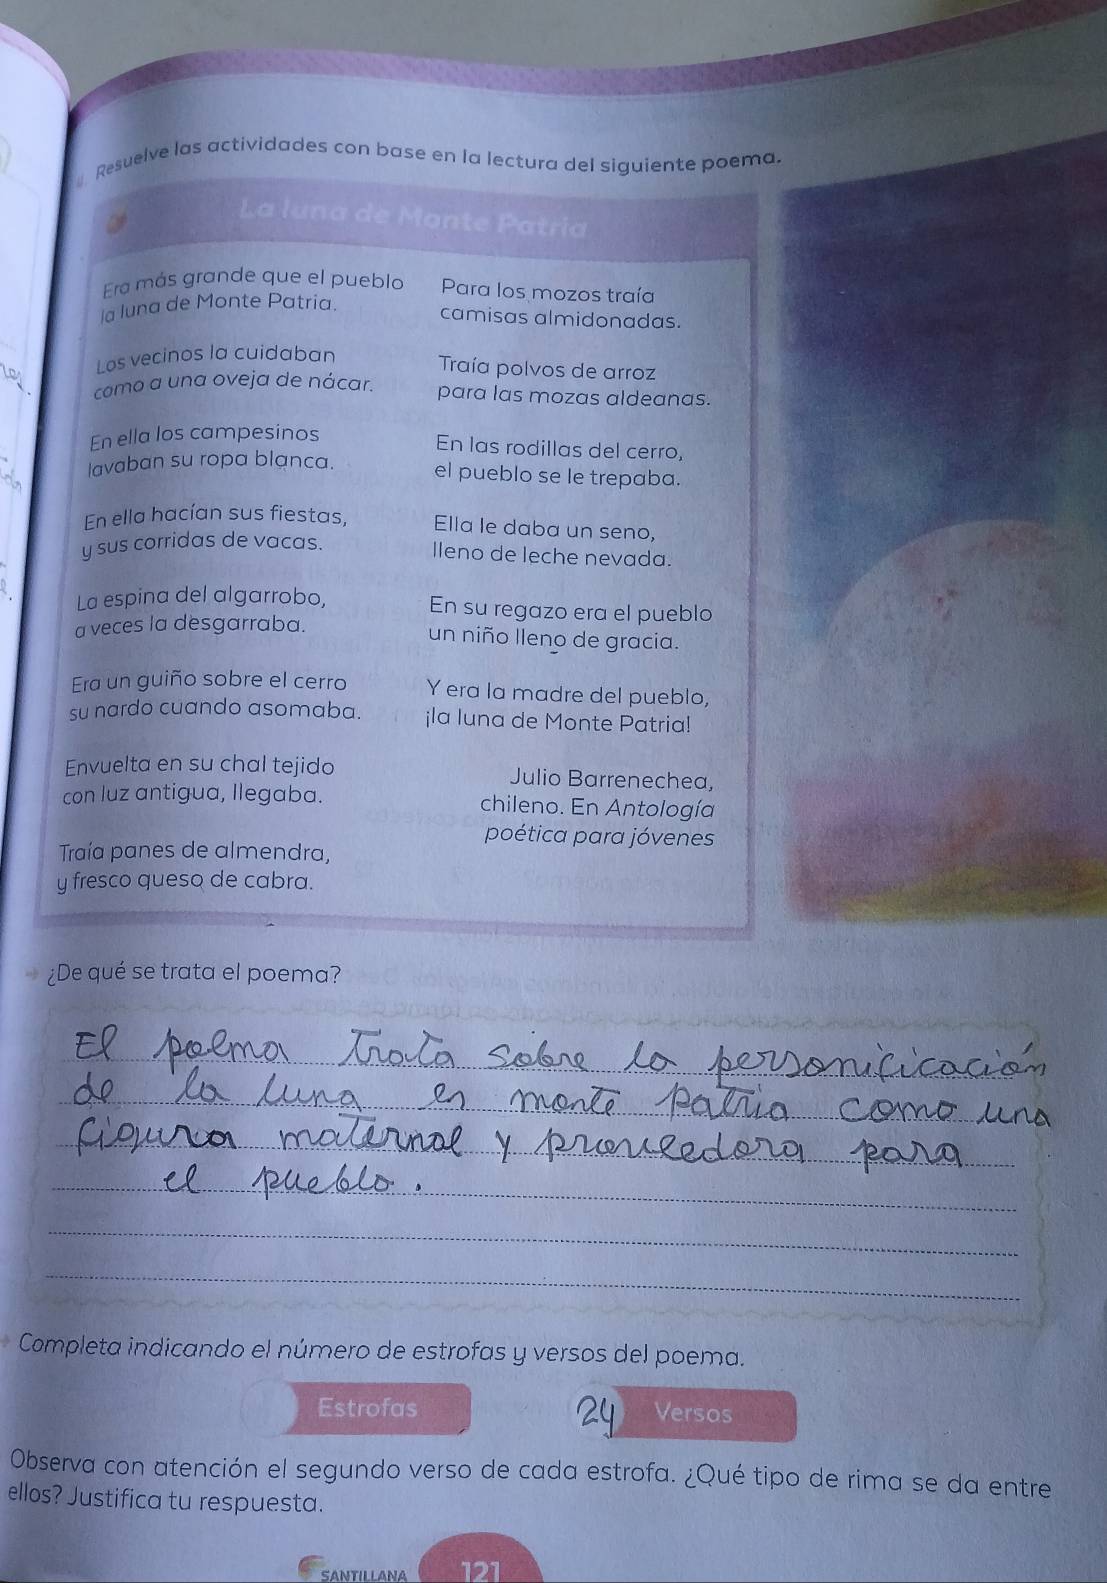 Resuelve las actividades con base en la lectura del siguiente poema.
La luna de Monte Patria
Era más grande que el pueblo
la luna de Monte Patria.
Los vecinos la cuidaban
como a una oveja de nácar.
En ella los campesinos
lavaban su ropa blanca.
En ella hacían sus fiestas,
y sus corridas de vacas.
La espina del algarrobo,
a veces la desgarraba.
Era un guiño sobre el cerro
su nardo cuando asomaba.
Envuelta en su chal tejido
con luz antigua, llegaba.
Traía panes de almendra,
y fresco queso de cabra.
Para los mozos traía
camisas almidonadas.
Traía polvos de arroz
para las mozas aldeanas.
En las rodillas del cerro,
el pueblo se le trepaba.
Ella le daba un seno,
lleno de leche nevada.
En su regazo era el pueblo
un niño lleno de gracia.
Y era la madre del pueblo,
¡la luna de Monte Patria!
Julio Barrenechea,
chileno. En Antología
poética para jóvenes
¿De qué se trata el poema?
El poema Trata sobre la personificación
de la luna en monte patria como una
figura maternal y proveedora para
el pueblo.
Completa indicando el número de estrofas y versos del poema.
Estrofas
24 Versos
Observa con atención el segundo verso de cada estrofa. ¿Qué tipo de rima se da entre
ellos? Justifica tu respuesta.
SANTILLANA 121